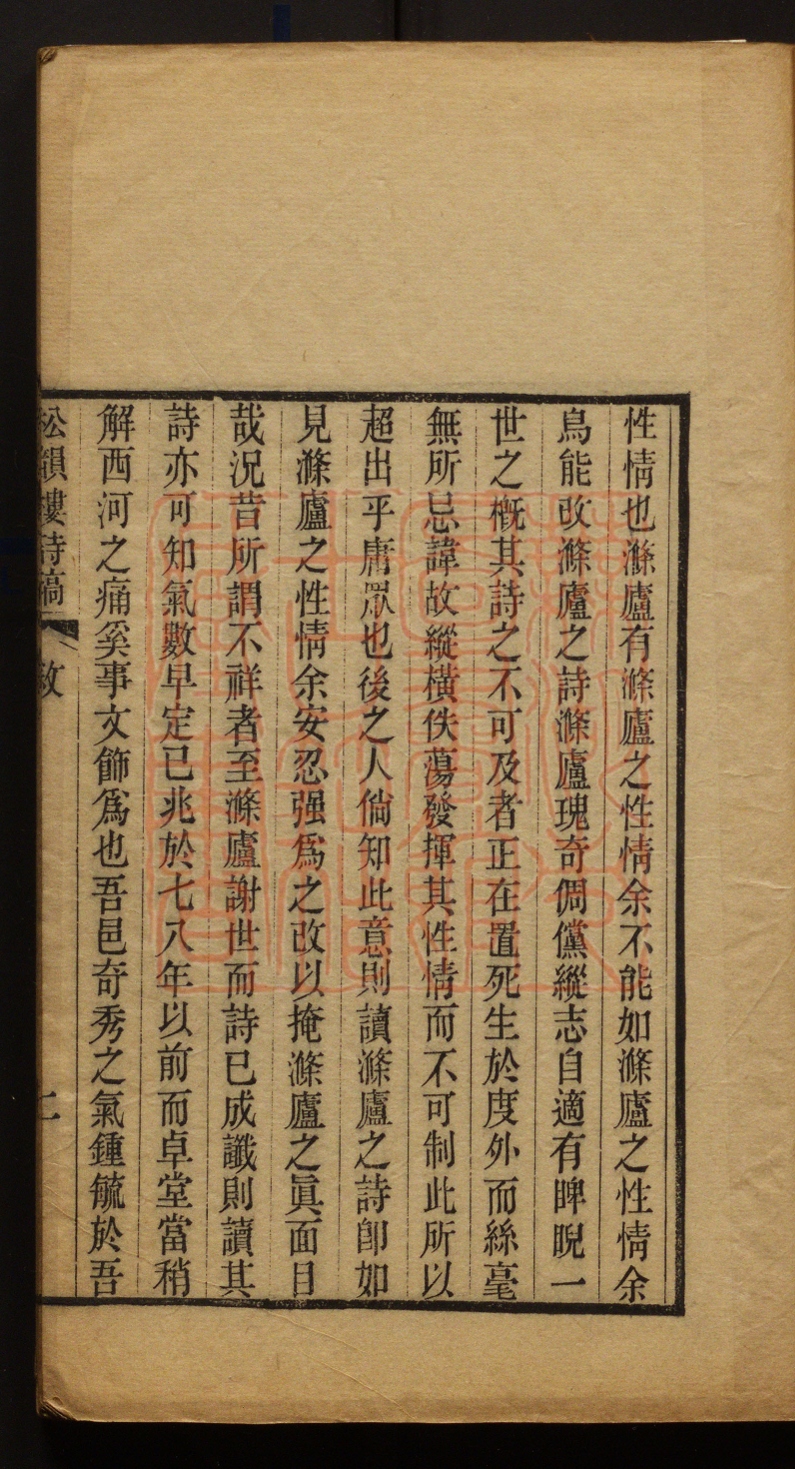 性情也滌廬有滌廬之性情余不能如滌廬之性情余
烏能改滌廬之詩滌廬瑰奇倜儻縱志自適有睥睨一
世之概其詩之不可及者正在置死生於度外而絲毫
無所忌諱故縱橫佚蕩發揮其性情而不可制此所以
超出乎庸眾也後之人倘知此意則讀滌廬之詩卽如
見滌廬之性情余安忍强爲之改以掩滌廬之眞面目
哉况昔所謂不祥者至滌廬謝世而詩已成讖則讀其
詩亦可知氣數早定已兆於七八年以前而卓堂當稍
解西河之痛奚事文飾爲也吾邑奇秀之氣鍾毓於吾
松韻樓詩稿
敘
二